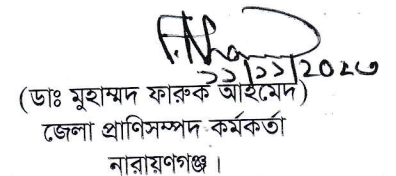 ১১/১১/২০২৩
(ডাঃ মুহাম্মদ ফারুক আহমেদ)
জেলা প্রাণিসম্পদ কর্মকর্তা
নারায়ণগঞ্জ।